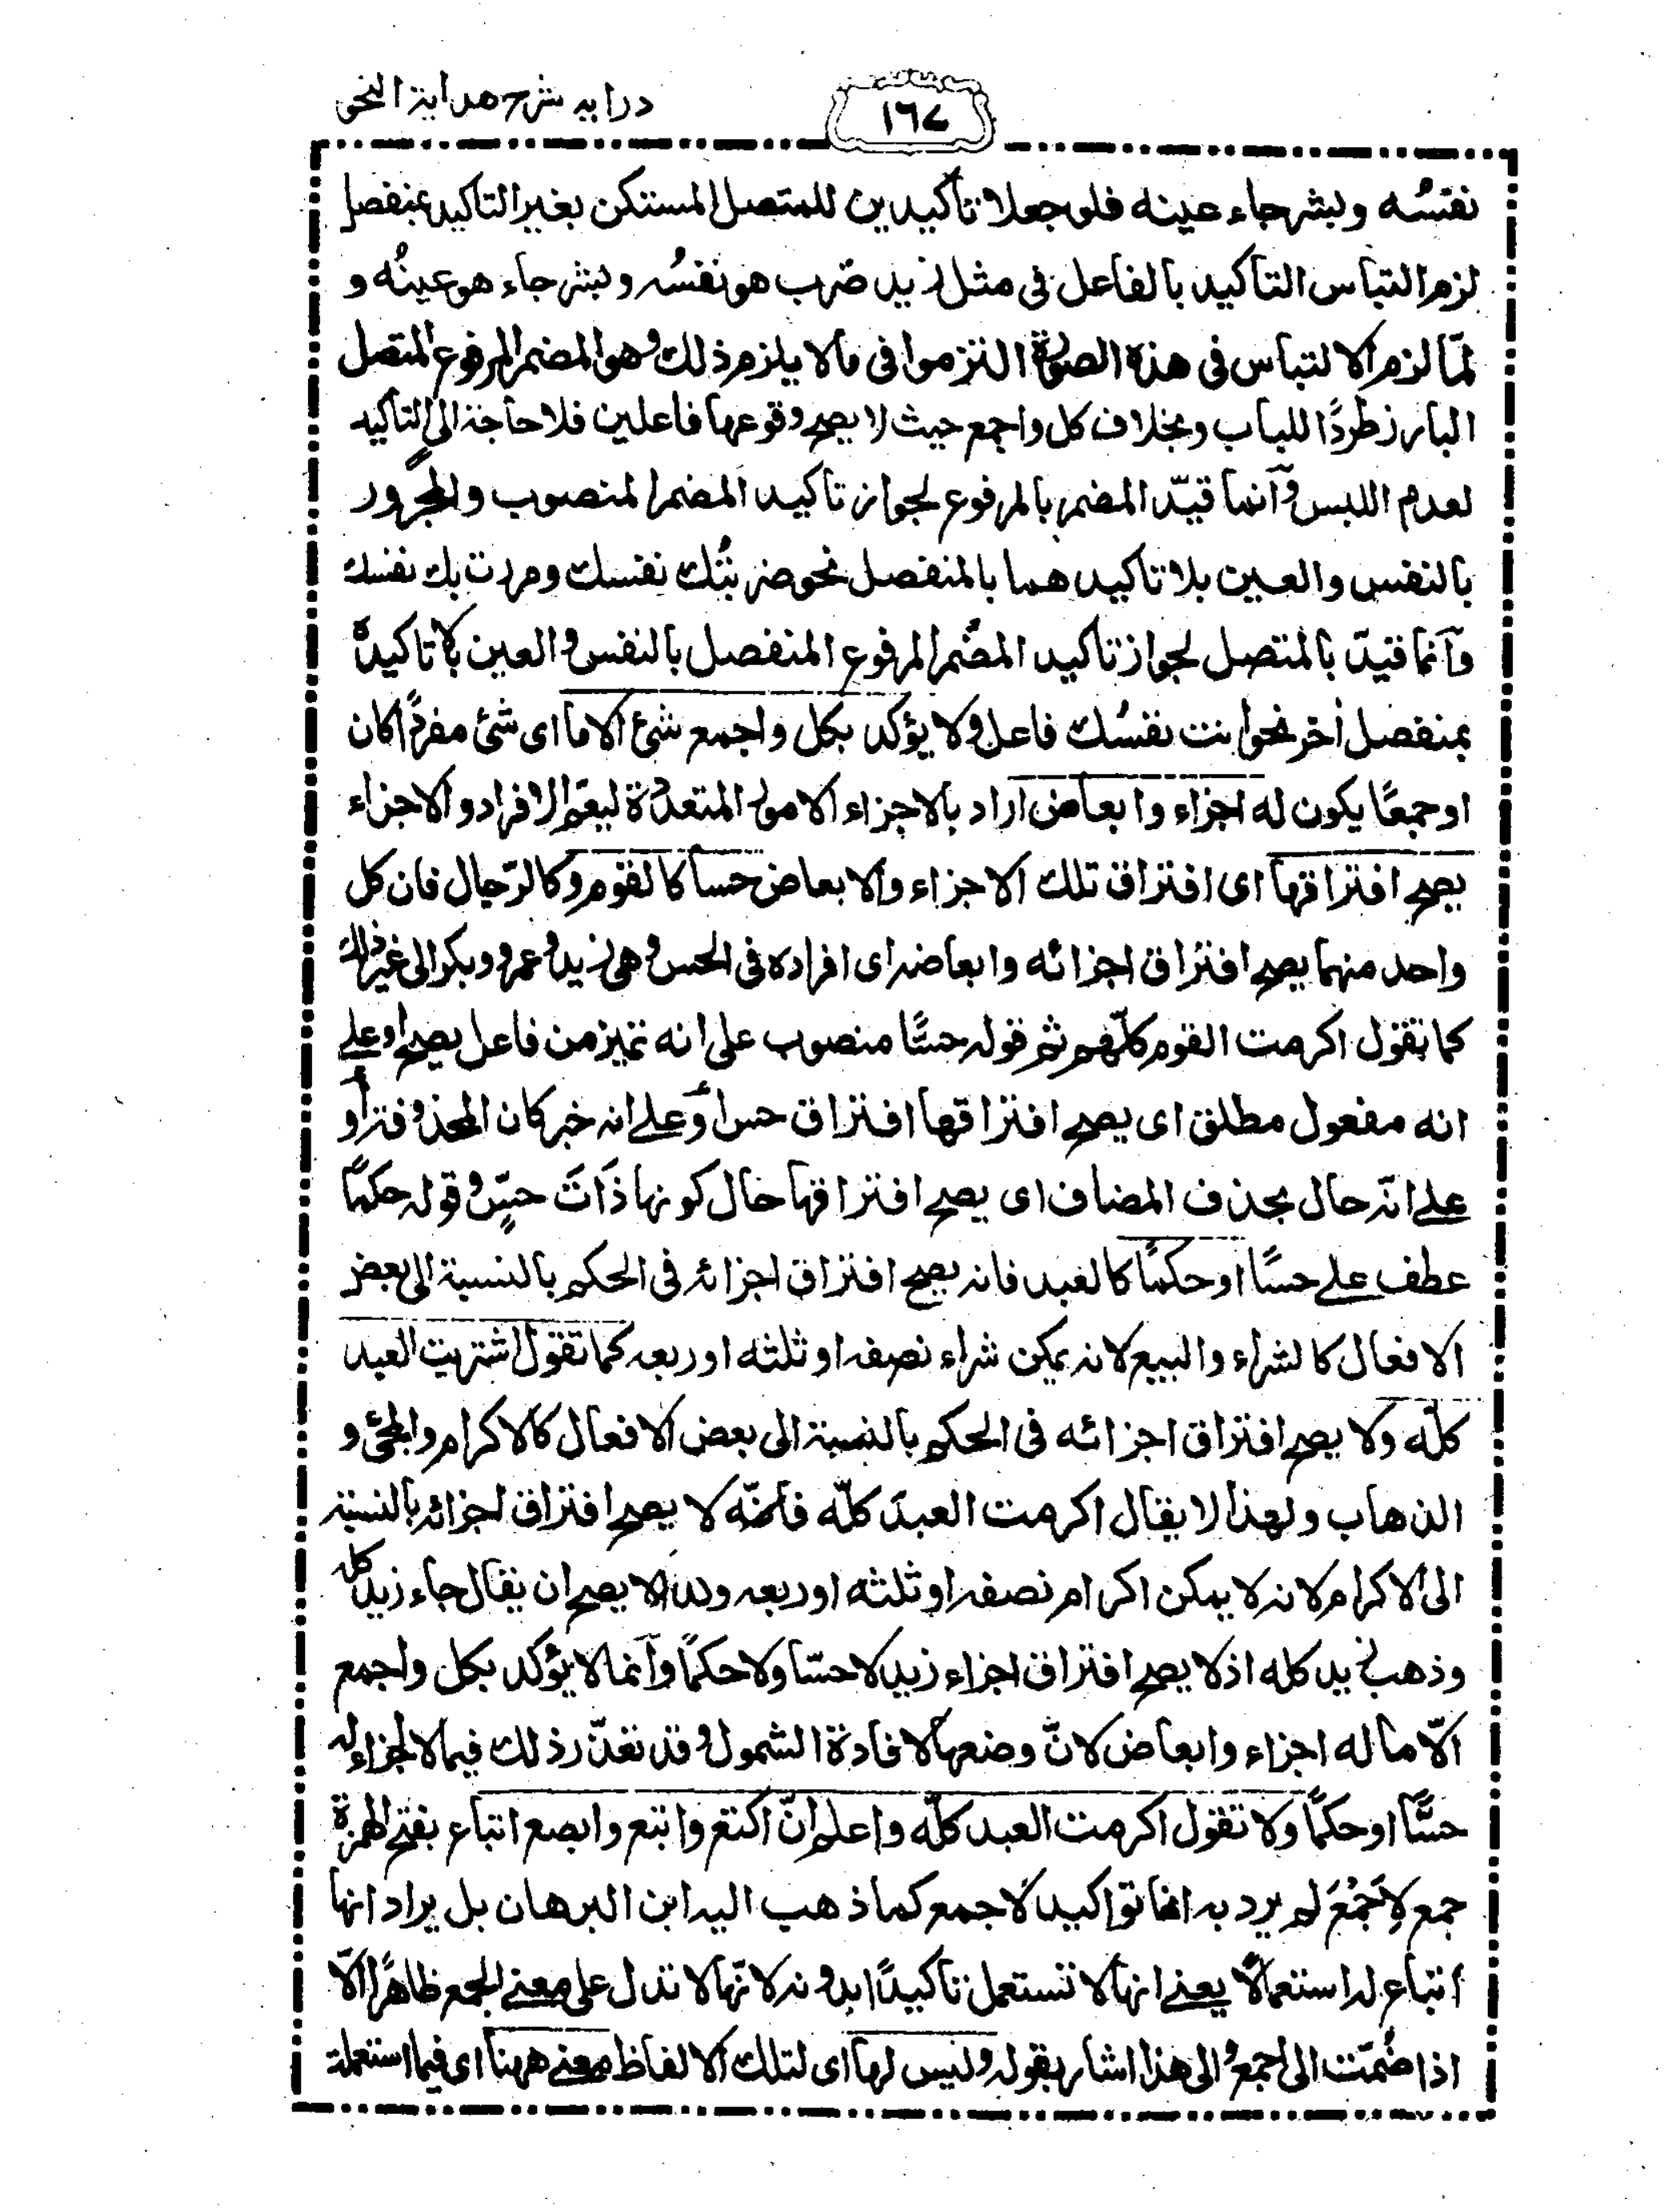 درايه شرح هداية النحو
١٦٧
نفسُه وبشر جاء عينه فلو جعلا تأكيدين للمتصل المستكن بغير التاكيد بمنفصل
لزم التباس التاكيد بالفاعل فى مثل زيد ضرب هو نفسُه وبشر جاء هو عينُه و
لمّا لزم الالتباس فى هذه الصورة التزموا فى مالا يلزم ذلك وهو المضمر المرفوع المتصل
البارز طردًا للباب وبخلاف كل واجمع حيث لا يصح وقوعها فاعلين فلا حاجة الى التأكيد
لعدم اللبس وانما قيّد المضمر بالمرفوع لجواز تاكيد المضمر المنصوب والمجرور
بالنفس والعين بلا تاكيد هما بالمنفصل نحو ضربتُك نفسك ومررت بك نفسك
وانما قيدّ بالمتصل لجواز تاكيد المضمر المرفوع المنفصل بالنفس والعين بلا تاكيده
بمنفصل أخر نحو انت نفسُك فاعل ولا يؤكد بكل واجمع شئ الا ما اى شئ مفردًا كان
اوجمعًا يكون له اجزاء وابعاض اراد بالاجزاء الامور المتعددة ليعم الافراد والاجزاء
يصح افتراقها اى افتراق تلك الاجزاء والابعاض حسا كالقوم وكالرّجال فان كل
واحد منهما يصح افتراق اجزائه وابعاضه اى افراده فى الحس وهى زيد وعمرو وبكر الى غير ذلك
كما تقول اكرمت القوم كلّهم ثم قوله حسًّا منصوب على انه تميز من فاعل يصح او على
انه مفعول مطلق اى يصح افتراقها افتراق حس او على انه خبر كان المحذوفة او
على انّه حال بحذف المضاف اى يصح افتراقها حال كونها ذَاتَ حسٍّ وقوله حكمًا
عطف على حسًّا او حكمًا كالعبد فانه يصح افتراق اجزائه فى الحكم بالنسبة الى بعض
الافعال كالشراء والبيع لانه يمكن شراء نصفه او ثلثه او ربعه كما تقول اشتريت العبد
كلّه ولا يصح افتراق اجزائه فى الحكم بالنسبة الى بعض الافعال كالاكرام والمجئ و
الذهاب ولهذا لا يقال اكرمت العبدَ كلّه فانّه لا يصح افتراق اجزائه بالنسبة
الى الاكرام لانه لا يمكن اكرام نصفه او ثلثه او ربعه ولذا لا يصح ان يقال جاء زيد كله
وذهب زيد كله اذ لا يصح افتراق اجزاء زيد لا حسّا ولا حكمًا وانما لا يؤكد بكل واجمع
الّا ما له اجزاء وابعاض لانّ وضعها لافادة الشمول وقد تعذّر ذلك فيما لا اجزاء له
حسًّا او حكمًا ولا تقول اكرمت العبد كلّه واعلم انّ اكتع وابتع وابصع اتباع بفتح الهمزة
جمع لاَجْمَعَ لم يرد به انها تواكيد لاجمع كما ذهب اليه ابن البرهان بل يراد انها
اتباع له استعمالًا يعنى انها لا تستعمل تاكيدًا بدونه لانّها لا تدل على معنى الجمع ظاهرًا الّا
اذا ضُمّت الى اجمع والى هذا اشار بقوله وليس لها اى لتلك الالفاظ معنى ههنا اى فيما استعملت